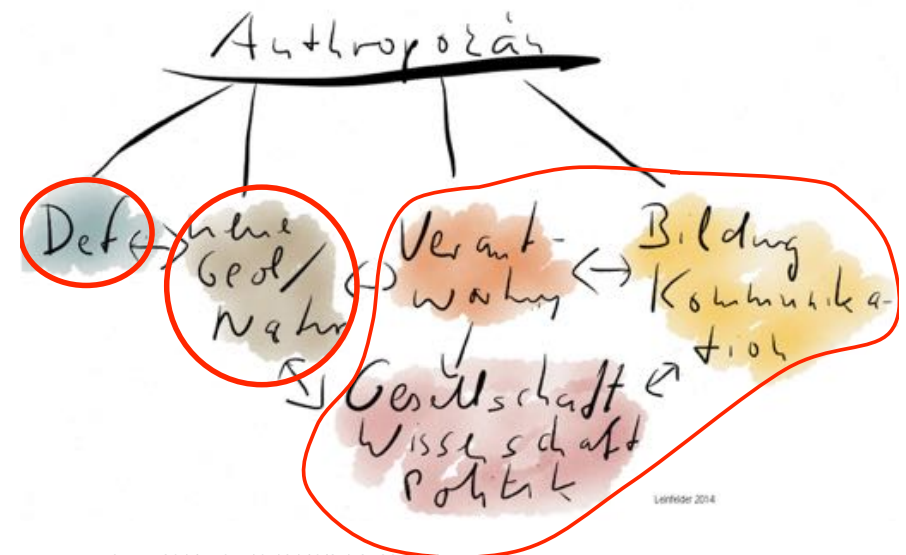 Anthropozän
Def
neue
Geol/
Natur
Verant-
wortung
Bildung
Kommunika-
tion
Gesellschaft
Wissenschaft
Politik
Leinfelder 2014